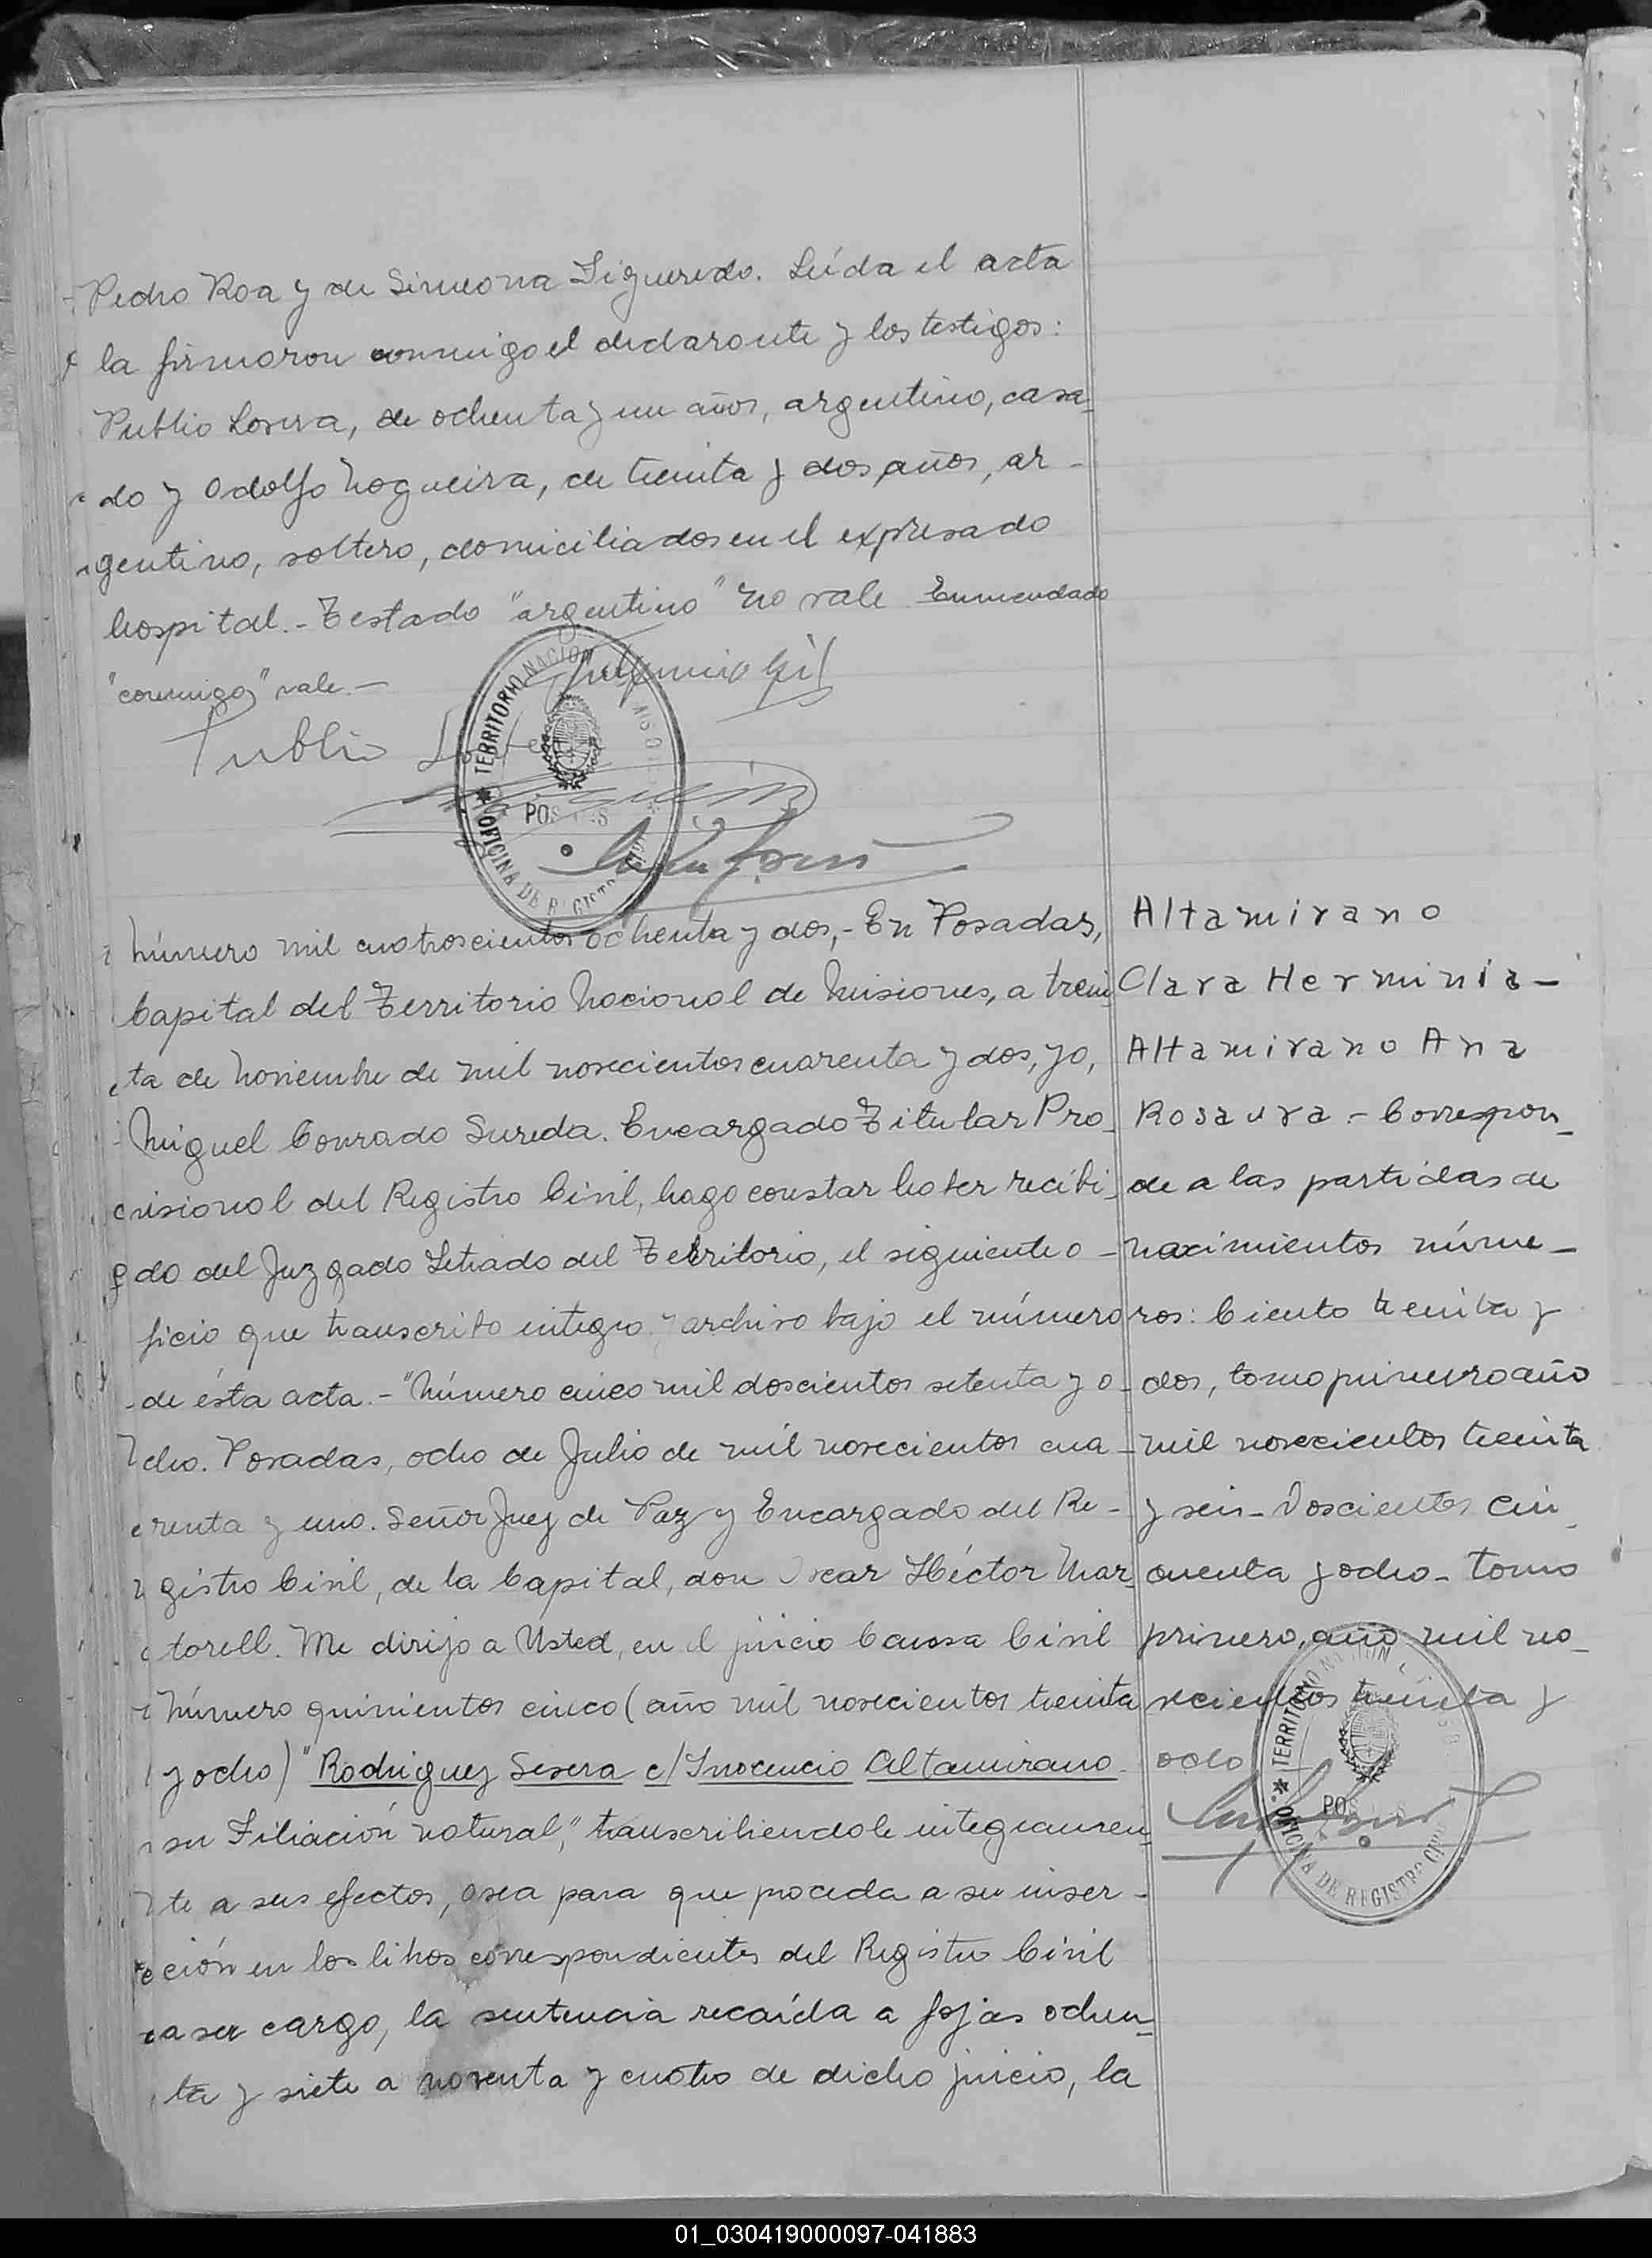 Pedro Roa y de Simeona Figueredo. Leída el acta
la firmaron conmigo el declarante y los testigos:
Publio Lovera, de ochenta y un años, argentino, casa-
do y Odolfo Nogueira, de treinta y dos años, ar-
gentino, soltero, domiciliados en el expresado
hospital.- Testado "argentino" no vale Enmendado
"conmigo" vale.-
Publio
TERRITORIO NACION
OFICINA DE REGISTRO
Número mil cuatroscientos ochenta y dos,- En Posadas,
Capital del Territorio Nacional de Misiones, a trein
ta de Noviembre de mil novecientos cuarenta y dos, yo,
Miguel Conrado Sureda. Encargado Titular Pro-
visional del Registro Civil, hago constar haber recibi-
do del Juzgado Letrado del Territorio, el siguiente o-
ficio que transcribo integro y archivo bajo el número
de ésta acta.- "Número cinco mil doscientos setenta y o-
cho. Posadas, ocho de Julio de mil novecientos cua-
renta y uno. Señor Juez de Paz y Encargado del Re-
gistro Civil, de la Capital, don Oscar Héctor Mar-
torell. Me dirijo a Usted, en el juicio Causa Civil
Número quinientos cinco (año mil novecientos treinta
y ocho) "Rodriguez Severa c/ Inocencio Altamirano-
su Filiación natural," transcribiendole integramen-
te a sus efectos, osea para que proceda a su inser-
ción en los libros correspondientes del Registro Civil
a su cargo, la sentencia recaída a fojas ochen-
ta y siete a noventa y cuatro de dicho juicio, la
Altamirano
Clara Herminia-
Altamirano Ana
Rosaura.- Correspon-
de a las partidas de
nacimientos núme-
ros: Ciento treinta y
dos, tomo primero año
mil novecientos treinta
y seis- Doscientos cin
cuenta y ocho- tomo
primero, año mil no-
vecientos treinta y
ocho
TERRITORIO NACION
OFICINA DE REGISTRO CIVIL
01_030419000097-041883